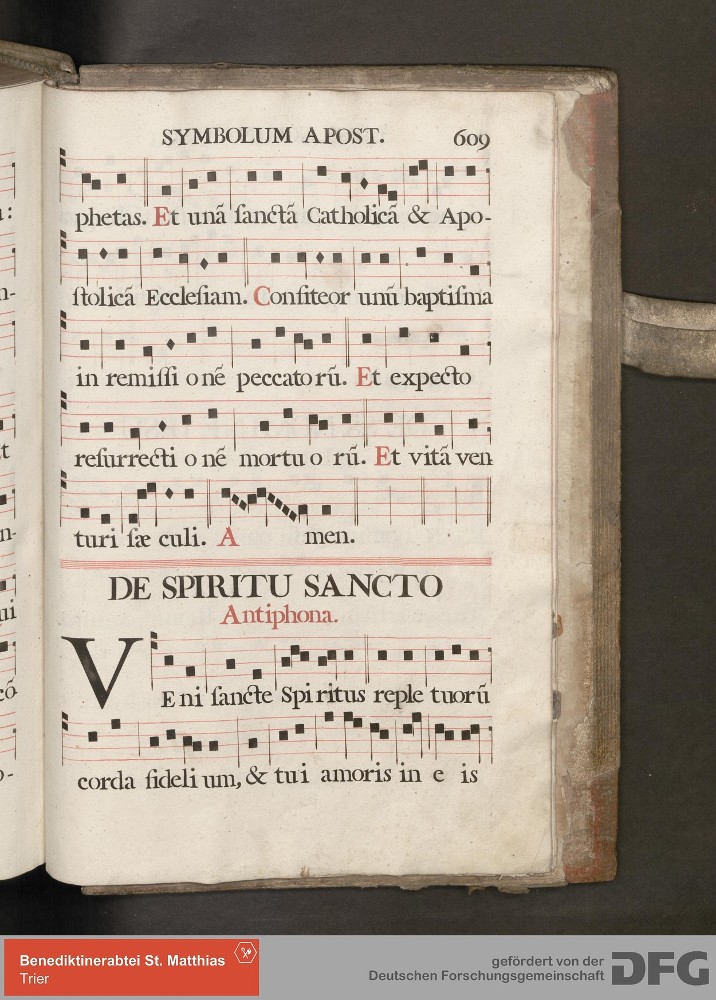 SYMBOLUM APOST. 609
phetas. Et unã ſanctã Catholicã & Apo-
ſtolicã Eccleſiam. Conſiteor unũ baptiſma
in remiſſi onẽ peccato rũ. Et expecto
reſurrecti onẽ mortu o rũ. Et vitã ven
turi ſæ culi. A men.
DE SPIRITU SANCTO
Antiphona.
VEni ſancte Spi ritus reple tuorũ
corda fideli um, & tui amoris in e is
Benediktinerabtei St. Matthias
Trier
gefördert von der
Deutschen Forschungsgemeinschaft
DFG